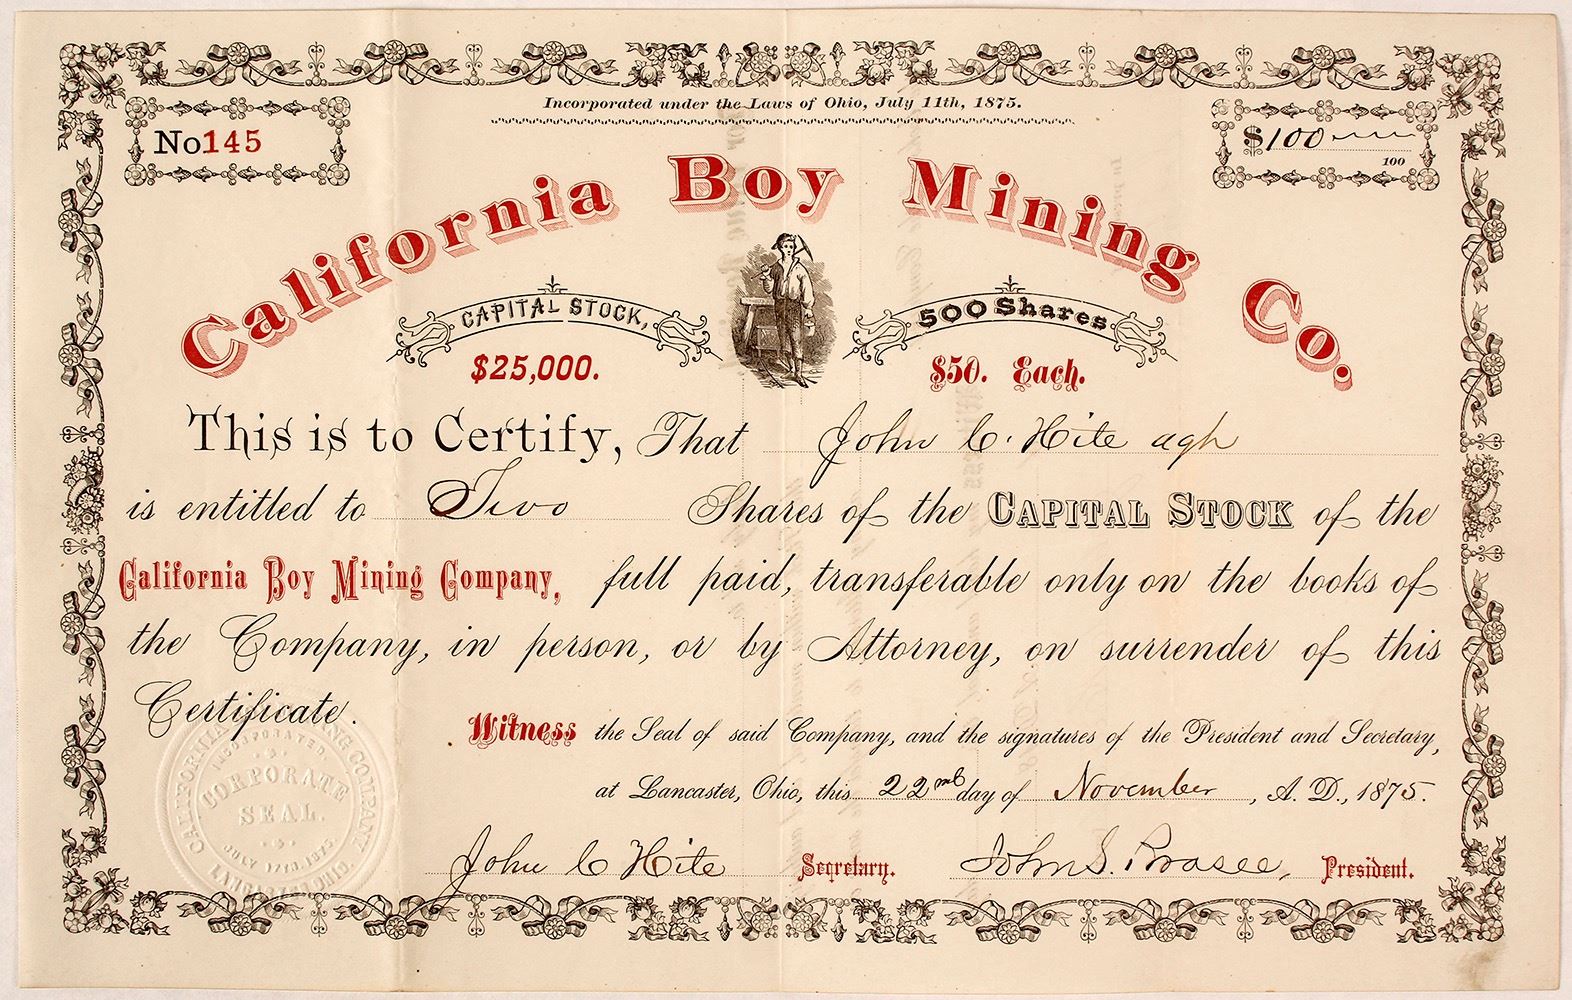 Incorporated under the Laws of Ohio, July 11th, 1875.
No145
$100
100
California Boy Mining Co.
CAPITAL STOCK,
500 Shares
$25,000.
$50. Each.
This is to Certify, That John C. Hite agh
is entitled to Two Shares of the CAPITAL STOCK of the
California Boy Mining Company, full paid, transferable only on the books of
the Company, in person, or by Attorney, on surrender of this
Certificate.
Witness the Seal of said Company, and the signatures of the President and Secretary,
at Lancaster, Ohio, this 22nd day of November, A. D., 1875.
John C Hite Secretary. John S. Brasee, President.
CALIFORNIA MINING COMPANY
INCORPORATED.
CORPORATE
SEAL.